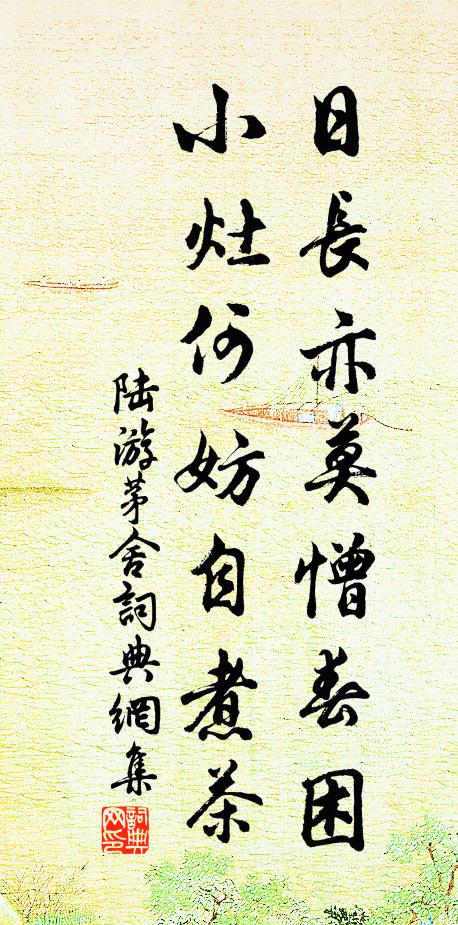 日長亦莫憎春困
小灶何妨自煮茶
陸游茅舍詞典網集
詞典
网印